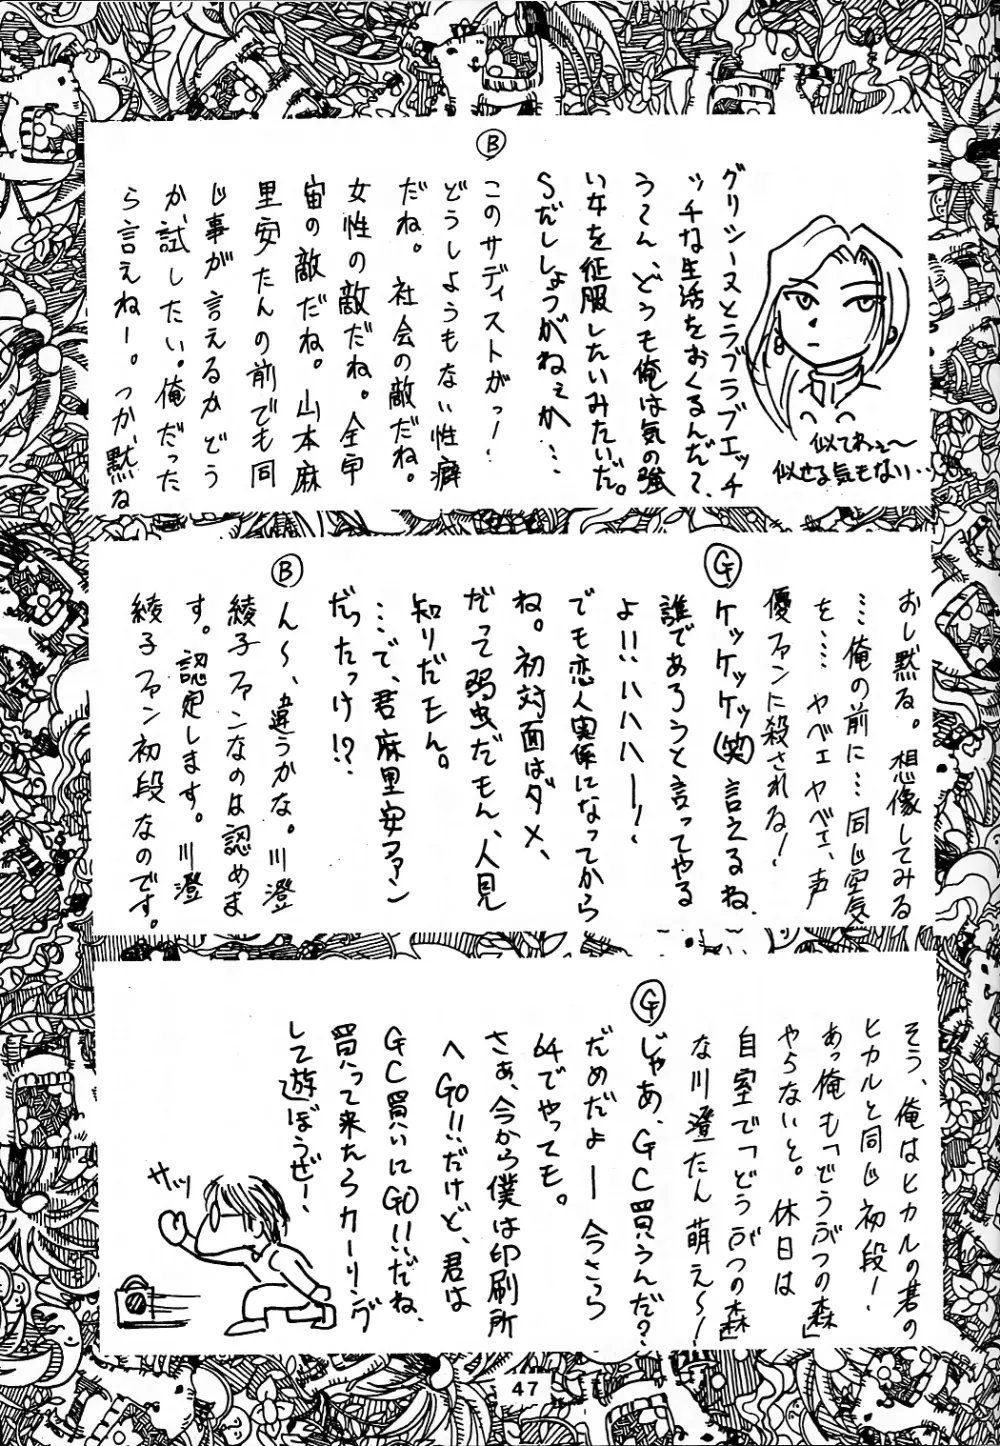 グリシーヌとラブラブエッチ
ッチな生活をおくるんだ?
うーん、どうも俺は気の強
い女を征服したいみたいだ。
Sだししょうがねぇか…
似てねぇ〜
似せる気もない…
Ⓑ
このサディストがっ!
どうしようもない性癖
だね。社会の敵だね。
女性の敵だね。全宇
宙の敵だね。山本麻
里安たんの前でも同
じ事が言えるかどう
か試したい。俺だった
ら言えねー。つか、黙る
おし黙る。想像してみる
…俺の前に…同じ空気
を…… ヤベェヤベェ、声
優ファンに殺される!
Ⓖ
ケッケッケッ(笑)言えるね、
誰であろうと言ってやる
よ!!ハハハー!
でも恋人関係になってから
ね。初対面はダメ、
だって弱虫だもん、人見
知りだモん。
…で、君麻里安ファン
だったっけ!?
Ⓑ
ん〜、違うかな。川澄
綾子ファンなのは認めま
す。認定します。川澄
綾子ファン初段なのです。
そう、俺はヒカルの碁の
ヒカルと同じ初段!
あっ俺も「どうぶつの森」
やらないと。休日は
自室で「どうぶつの森」
な川澄たん萌え〜!
Ⓖ
じゃあ、GC買うんだ?
だめだよー今さら
64でやっても。
さぁ、今から僕は印刷所
へGO!!だけど、君は
GC買いにGO!!だね、
買って来たらカーリング
して遊ぼうぜー!
サッ
47